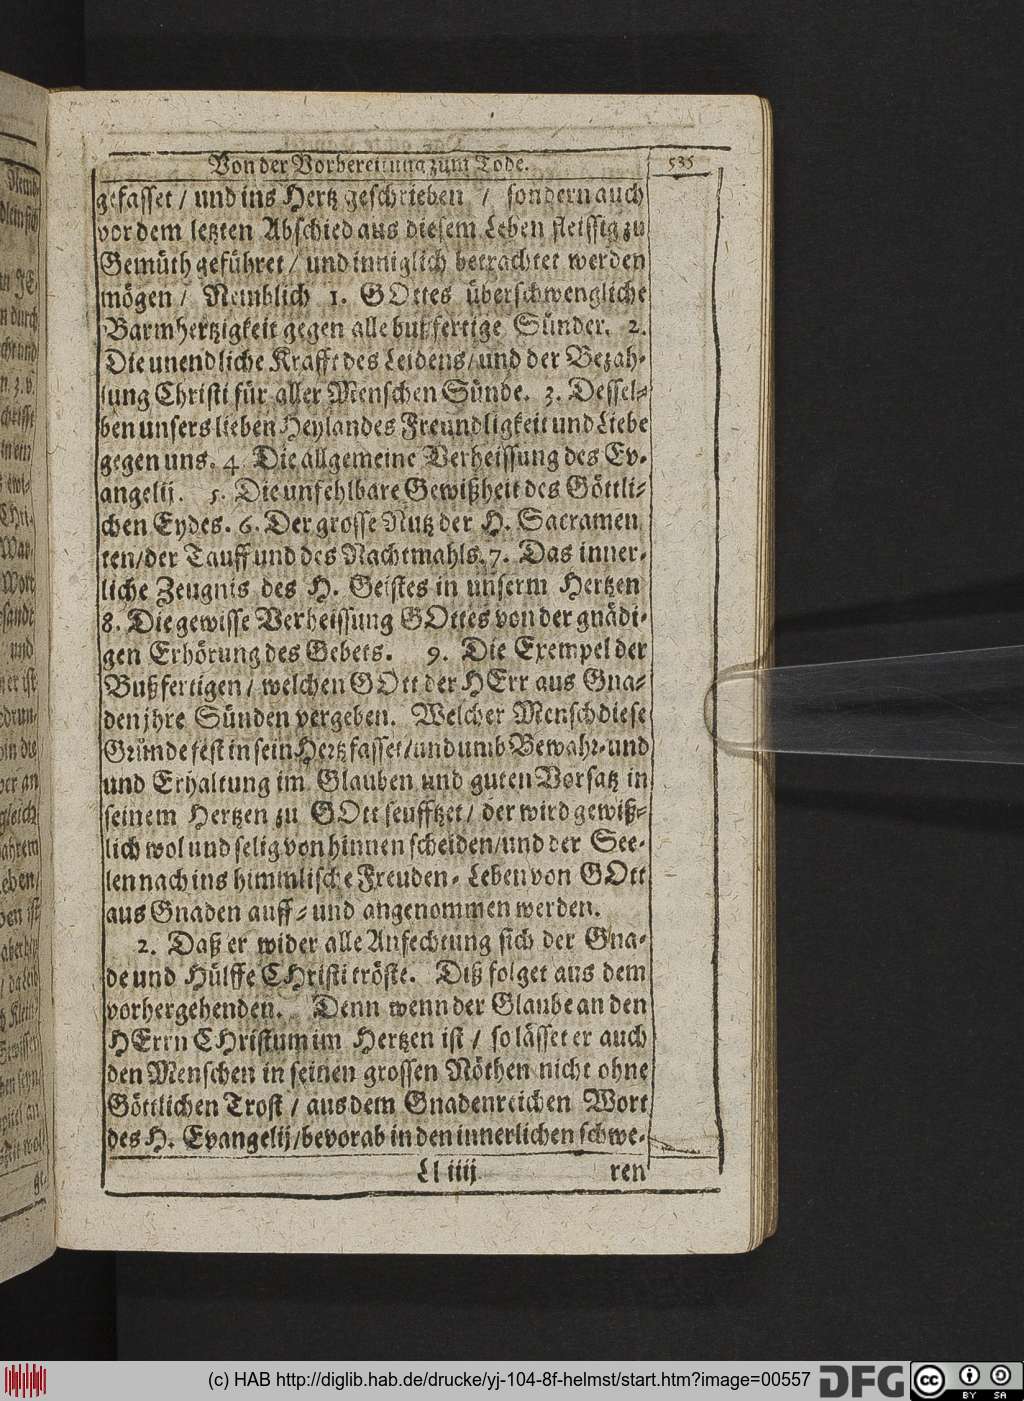 Von der Vorbereitung zum Tode. 535
gefasset / und ins Hertz geschrieben / sondern auch
vor dem letzten Abschied aus diesem Leben fleissig zu
Gemüth geführet / und inniglich betrachtet werden
mögen / Nemblich 1. GOttes überschwengliche
Barmhertzigkeit gegen alle bußfertige Sünder. 2.
Die unendliche Krafft des Leidens / und der Bezah-
lung Christi für aller Menschen Sünde. 3. Dessel-
ben unsers lieben Heylandes Freundligkeit und Liebe
gegen uns. 4. Die allgemeine Verheissung des Ev-
angelij. 5. Die unfehlbare Gewißheit des Göttli-
chen Eydes. 6. Der grosse Nutz der H. Sacramen
ten / der Tauff und des Nachtmahls. 7. Das inner-
liche Zeugnis des H. Geistes in unserm Hertzen
8. Die gewisse Verheissung GOttes von der gnädi-
gen Erhörung des Gebets. 9. Die Exempel der
Bußfertigen / welchen GOtt der HErr aus Gna-
den jhre Sünden vergeben. Welcher Mensch diese
Gründe fest in sein Hertz fasset / und umb Bewahr- und
und Erhaltung im Glauben und guten Vorsatz in
seinem Hertzen zu GOtt seufftzet / der wird gewiß-
lich wol und selig von hinnen scheiden / und der See-
len nach ins himmlische Freuden-Leben von GOtt
aus Gnaden auff- und angenommen werden.
2. Daß er wider alle Anfechtung sich der Gna-
de und Hülffe CHristi tröste. Diß folget aus dem
vorhergehenden. Denn wenn der Glaube an den
HErrn CHristum im Hertzen ist / so lässet er auch
den Menschen in seinen grossen Nöthen nicht ohne
Göttlichen Trost / aus dem Gnadenreichen Wort
des H. Evangelij / bevorab in den innerlichen schwe-
Ll iiij ren
(c) HAB http://diglib.hab.de/drucke/yj-104-8f-helmst/start.htm?image=00557 DFG cc BY SA